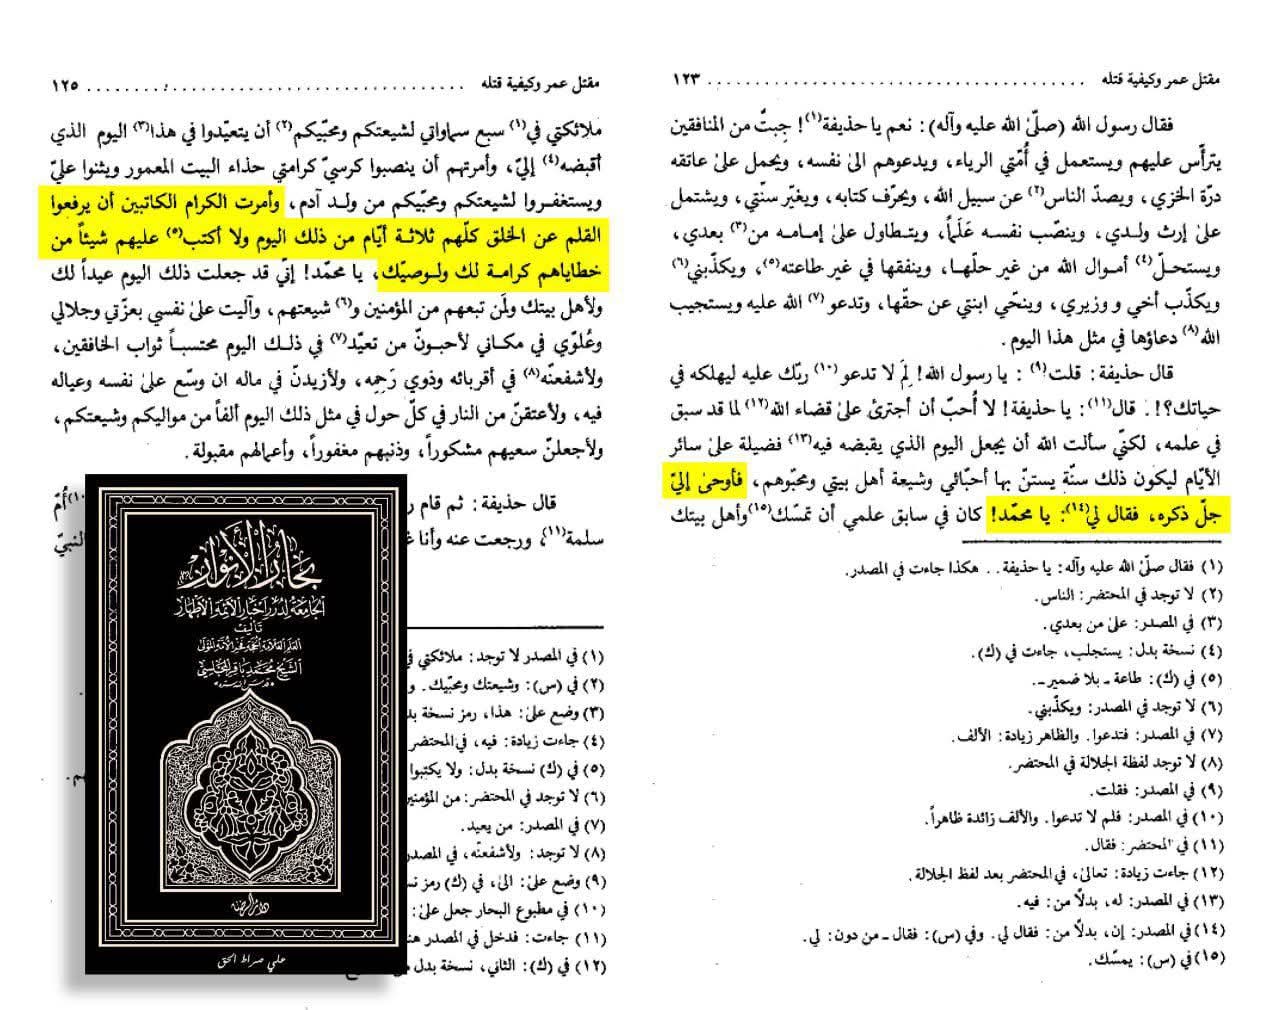 مقتل عمر وكيفية قتله ........................................ ١٢٣
فقال رسول الله (صلّى الله عليه وآله): نعم يا حذيفة(١)! جِبتٌ من المنافقين
يترأّس عليهم ويستعمل في أُمّتي الرياء، ويدعوهم الى نفسه، ويحمل على عاتقه
درّة الخزي، ويصدّ الناس(٢) عن سبيل الله، ويحرّف كتابه، ويغيّر سنّتي، ويشتمل
على إرث ولدي، وينصّب نفسه عَلَماً، ويتطاول على إمامه من(٣) بعدي،
ويستحلّ(٤) أموال الله من غير حلّها، وينفقها في غير طاعته(٥)، ويكذّبني(٦)
ويكذّب أخي و وزيري، وينحّي ابنتي عن حقّها، وتدعو(٧) الله عليه ويستجيب
الله(٨) دعاؤها في مثل هذا اليوم.
قال حذيفة: قلت(٩): يا رسول الله! لِمَ لا تدعو(١٠) ربّك عليه ليهلكه في
حياتك؟!. قال(١١): يا حذيفة! لا أُحبّ أن أجترئ على قضاء الله(١٢) لما قد سبق
في علمه، لكنّي سألت الله أن يجعل اليوم الذي يقبضه فيه(١٣) فضيلة على سائر
الأيّام ليكون ذلك سنّة يستنّ بها أحبّائي وشيعة أهل بيتي ومحبّوهم، فأوحى إليّ
جلّ ذكره، فقال لي(١٤): يا محمّد! كان في سابق علمي أن تمسّك(١٥) وأهل بيتك
(١) فقال صلّى الله عليه وآله: يا حذيفة.. هكذا جاءت في المصدر.
(٢) لا توجد في المحتضر: الناس.
(٣) في المصدر: على من بعدي.
(٤) نسخة بدل: يستجلب، جاءت في (ك).
(٥) في (ك): طاعة ـ بلا ضمير ـ.
(٦) لا توجد في المصدر: ويكذّبني.
(٧) في المصدر: فتدعوا. والظاهر زيادة: الألف.
(٨) لا توجد لفظة الجلالة في المحتضر.
(٩) في المصدر: فقلت.
(١٠) في المصدر: فلم لا تدعوا. والألف زائدة ظاهراً.
(١١) في المحتضر: فقال.
(١٢) جاءت زيادة: تعالى، في المحتضر بعد لفظ الجلالة.
(١٣) في المصدر: له، بدلاً من: فيه.
(١٤) في المصدر: إن، بدلاً من: فقال لي. وفي (س): فقال ـ من دون: لي.
(١٥) في (س): يمسّك.
مقتل عمر وكيفية قتله ........................................ ١٢٥
ملائكتي في(١) سبع سماواتي لشيعتكم ومحبّيكم(٢) أن يتعيّدوا في هذا(٣) اليوم الذي
أقبضه(٤) إليّ، وأمرتهم أن ينصبوا كرسيّ كرامتي حذاء البيت المعمور ويثنوا عليّ
ويستغفروا لشيعتكم ومحبّيكم من ولد آدم، وأمرت الكرام الكاتبين أن يرفعوا
القلم عن الخلق كلّهم ثلاثة أيّام من ذلك اليوم ولا أكتب(٥) عليهم شيئاً من
خطاياهم كرامة لك ولوصيّك، يا محمّد! إنّي قد جعلت ذلك اليوم عيداً لك
ولأهل بيتك ولَمن تبعهم من المؤمنين و(٦) شيعتهم، وآليت على نفسي بعزّتي وجلالي
وعُلوّي في مكاني لأحبونّ من تعيّد(٧) في ذلك اليوم محتسباً ثواب الخافقين،
ولأشفعنّه(٨) في أقربائه وذوي رَحِمِه، ولأزيدنّ في ماله ان وسّع على نفسه وعياله
فيه، ولأعتقنّ من النار في كلّ حول في مثل ذلك اليوم ألفاً من مواليكم وشيعتكم،
ولأجعلنّ سعيهم مشكوراً، وذنبهم مغفوراً، وأعمالهم مقبولة.
قال حذيفة: ثم قام ر (١٠) أُمّ
سلمة(١١)، ورجعت عنه وأنا النبيّ
(١) في المصدر لا توجد: ملائكتي في
(٢) في (س): وشيعتك ومحبّيك. و
(٣) وضع على: هذا، رمز نسخة بد
(٤) جاءت زيادة: فيه، في المحتضر
(٥) في (ك) نسخة بدل: ولا يكتبوا
(٦) لا توجد في المحتضر: من المؤمنين
(٧) في المصدر: من يعيد.
(٨) لا توجد: ولأشفعنّه، في المصدر
(٩) وضع على: الى، في (ك) رمز نس
(١٠) في مطبوع البحار جعل على:
(١١) جاءت: فدخل في المصدر
(١٢) في (ك): الثاني، نسخة بدل
بحار الأنوار
الجامعة لدرر أخبار الأئمة الأطهار
تأليف
العلم العلامة الحجة فخر الأمة المولى
الشيخ محمد باقر المجلسي
علي صراط الحق